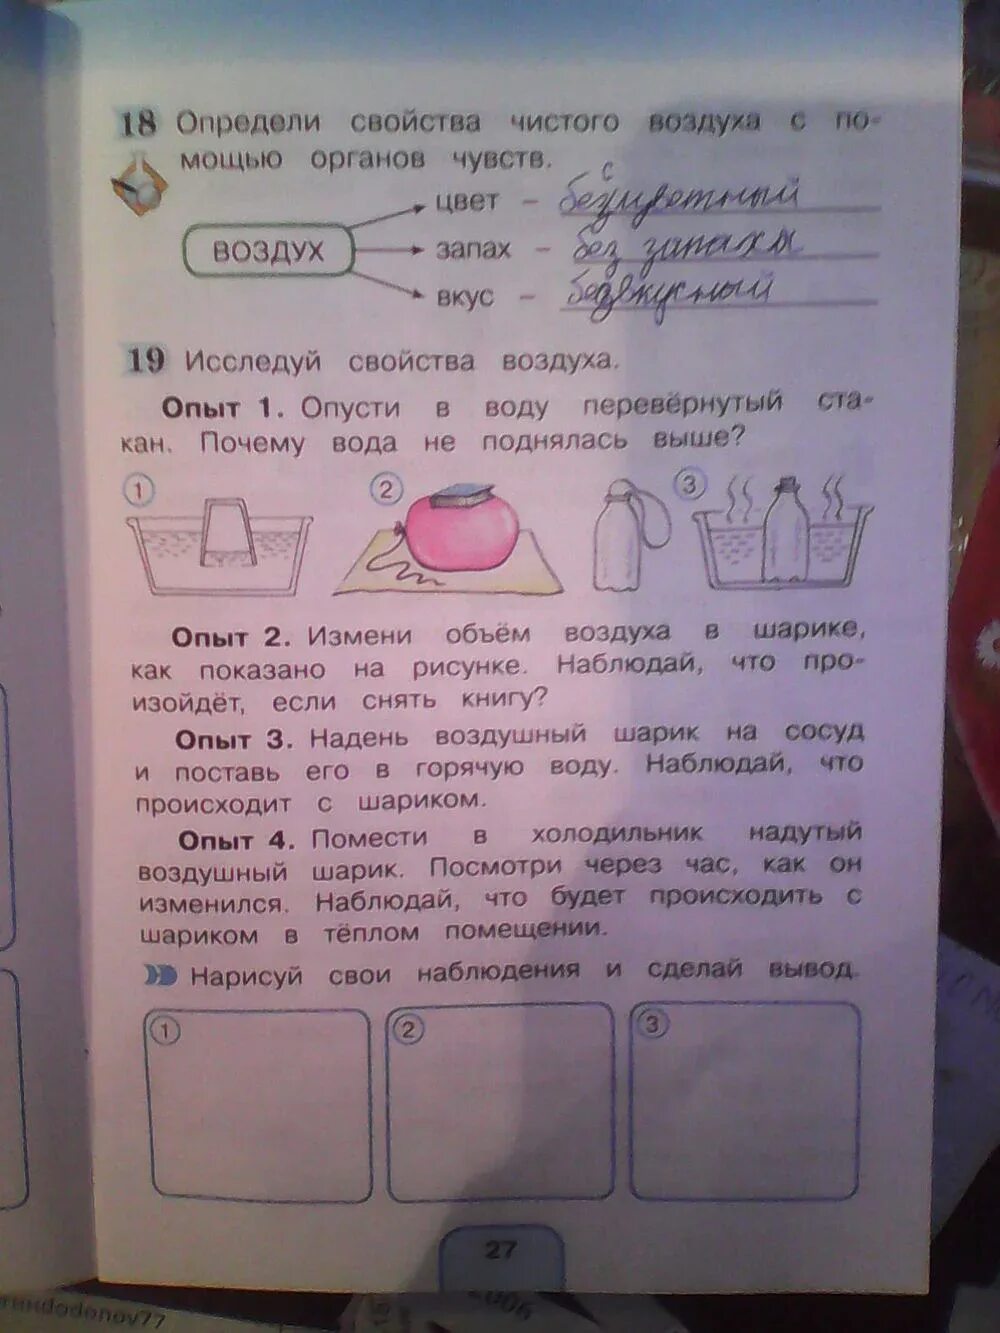 18 Определи свойства чистого воздуха с по-
мощью органов чувств.
с
цвет – безцветный
ВОЗДУХ
запах – без запаха
вкус – безвкусный
19 Исследуй свойства воздуха.
Опыт 1. Опусти в воду перевёрнутый ста-
кан. Почему вода не поднялась выше?
1
2
3
Опыт 2. Измени объём воздуха в шарике,
как показано на рисунке. Наблюдай, что про-
изойдёт, если снять книгу?
Опыт 3. Надень воздушный шарик на сосуд
и поставь его в горячую воду. Наблюдай, что
происходит с шариком.
Опыт 4. Помести в холодильник надутый
воздушный шарик. Посмотри через час, как он
изменился. Наблюдай, что будет происходить с
шариком в тёплом помещении.
Нарисуй свои наблюдения и сделай вывод.
1
2
3
27